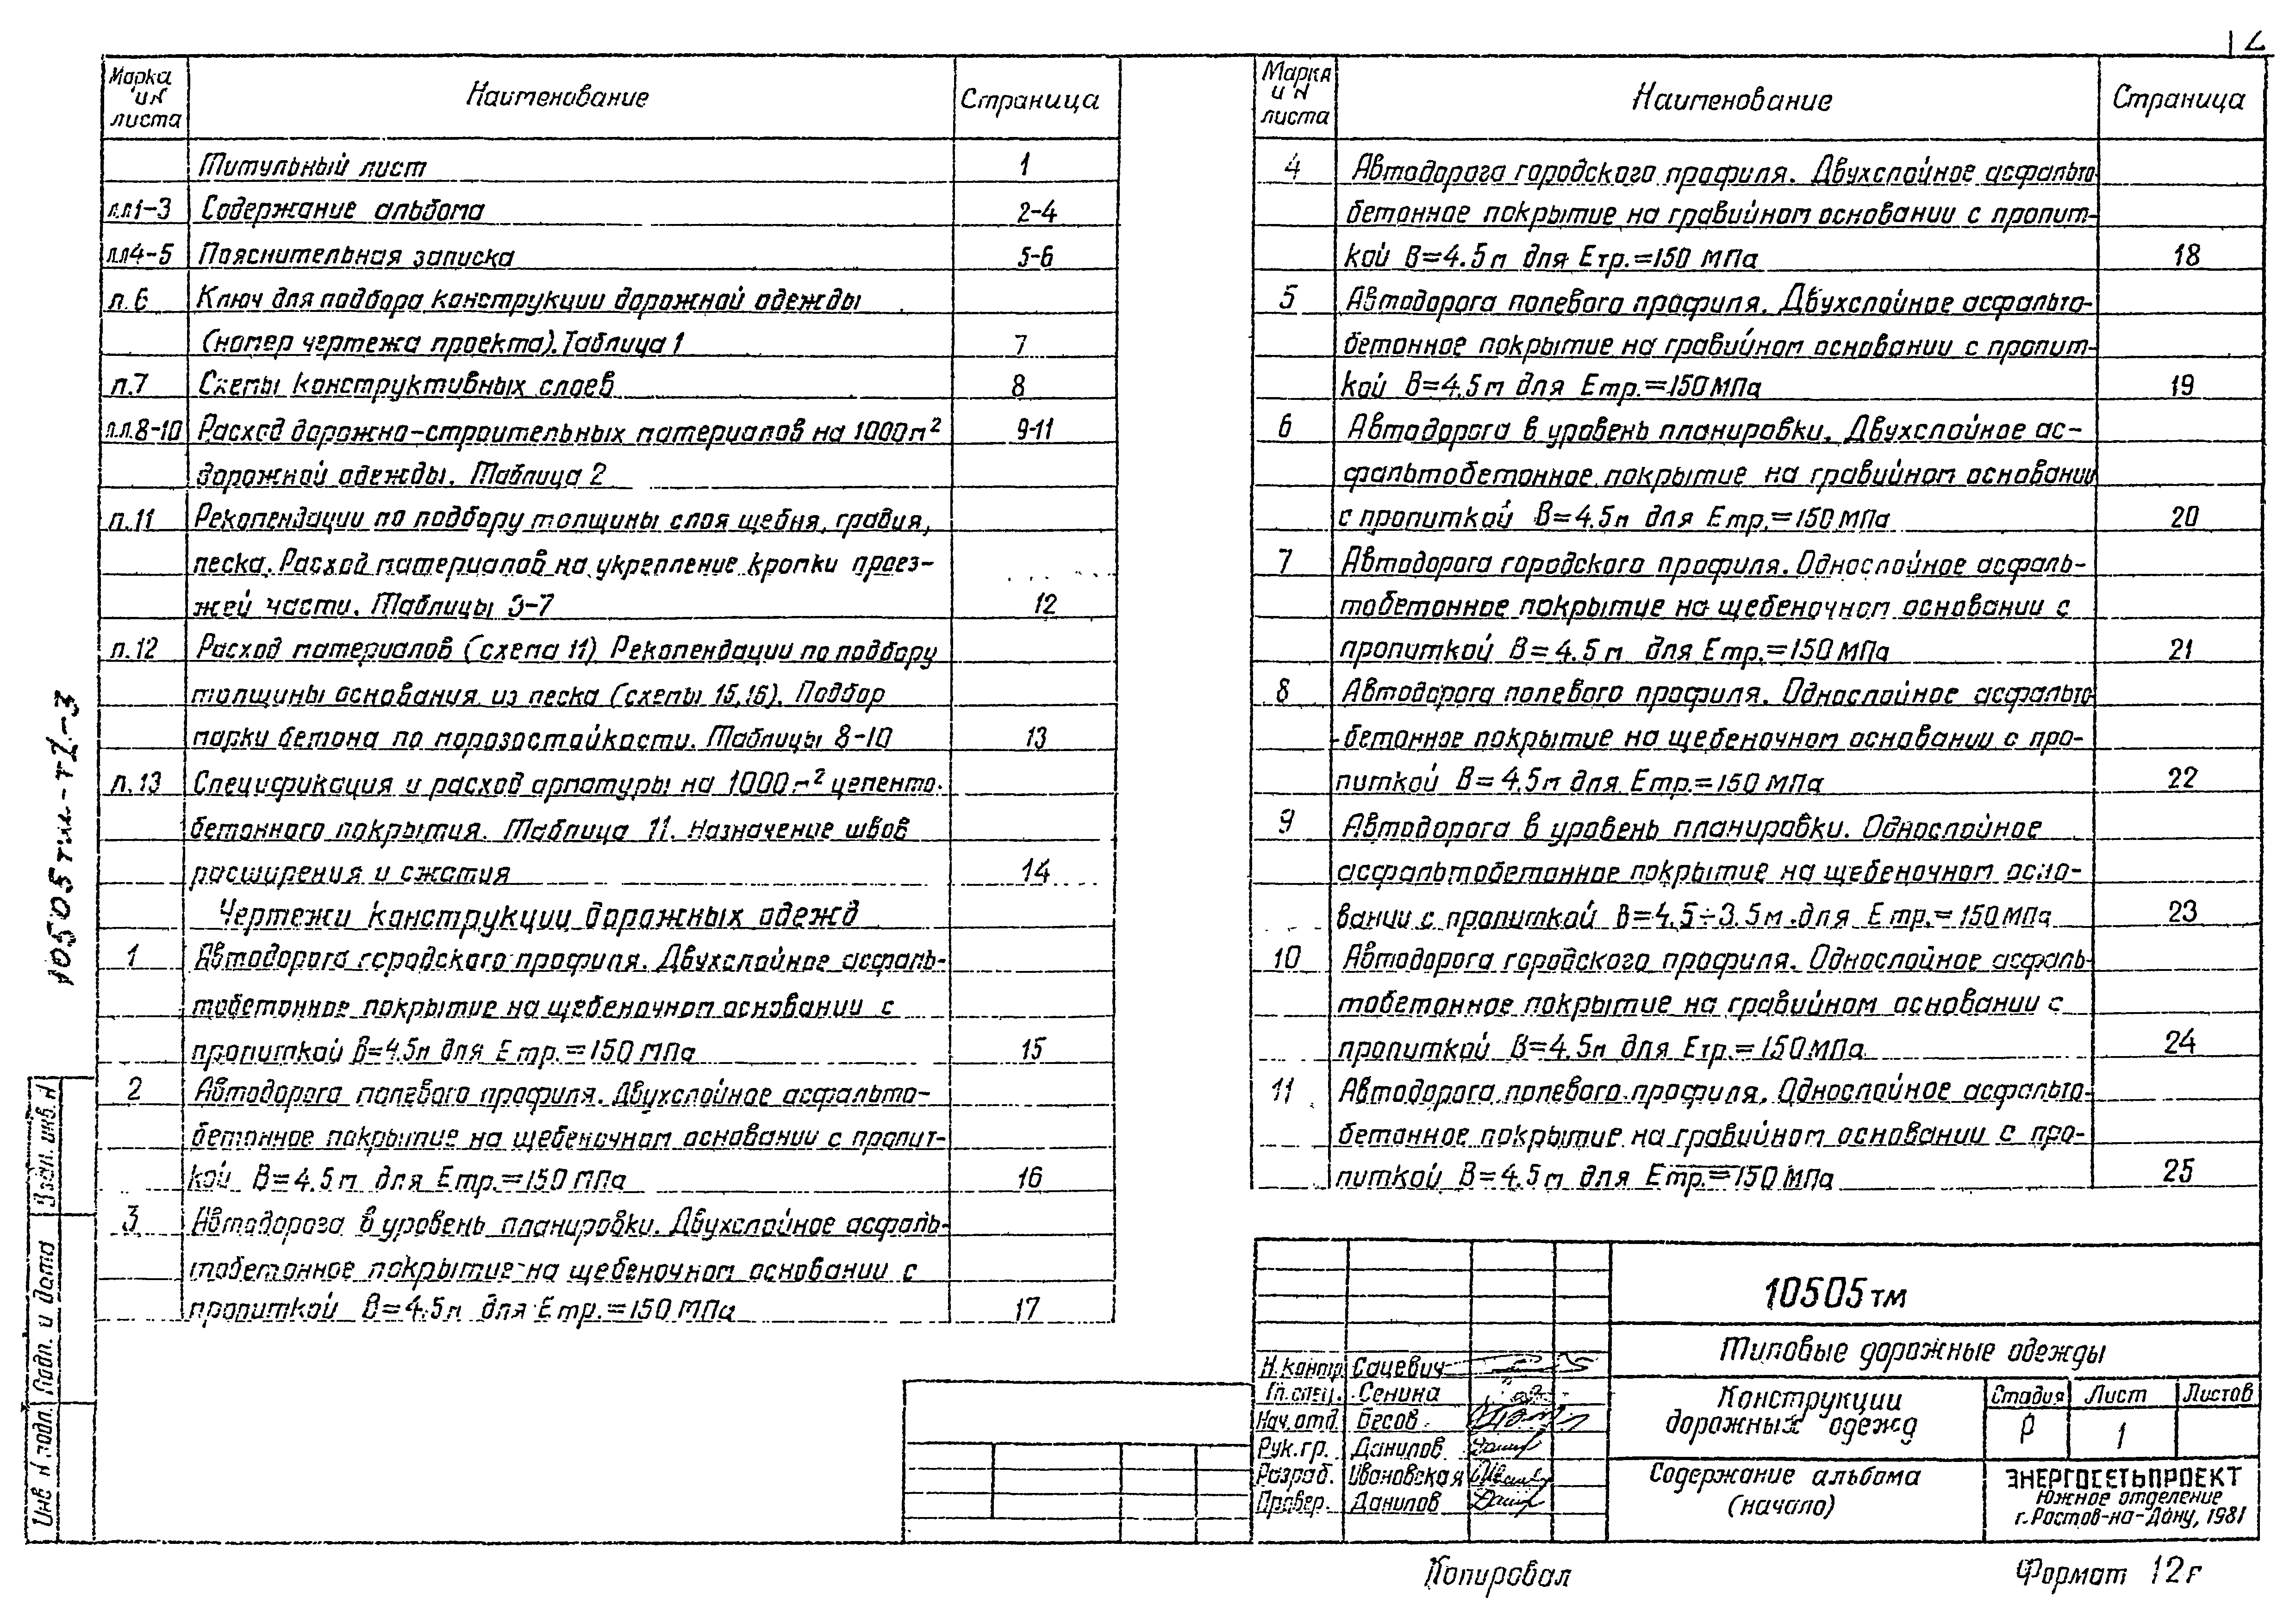 Марка и N листа | Наименование | Страница
Титульный лист 1
л.л1-3 Содержание альбома 2-4
л.л4-5 Пояснительная записка 5-6
л.6 Ключ для подбора конструкции дорожной одежды
(номер чертежа проекта). Таблица 1 7
л.7 Схемы конструктивных слоев 8
л.л.8-10 Расход дорожно-строительных материалов на 1000м² 9-11
дорожной одежды. Таблица 2
л.11 Рекомендации по подбору толщины слоя щебня, гравия,
песка. Расход материалов на укрепление кромки проез-
жей части. Таблицы 3-7 12
л.12 Расход материалов (схема 11) Рекомендации по подбору
толщины основания из песка (схемы 15,16). Подбор
марки бетона по морозостойкости. Таблицы 8-10 13
л.13 Спецификация и расход арматуры на 1000м² цементо-
бетонного покрытия. Таблица 11. Назначение швов
расширения и сжатия 14
Чертежи конструкции дорожных одежд
1 Автодорога городского профиля. Двухслойное асфаль-
тобетонное покрытие на щебеночном основании с
пропиткой В=4.5м для Етр.=150 МПа 15
2 Автодорога полевого профиля. Двухслойное асфальто-
бетонное покрытие на щебеночном основании с пропит-
кой В=4.5м для Етр.=150 МПа 16
3 Автодорога в уровень планировки. Двухслойное асфаль-
тобетонное покрытие на щебеночном основании с
пропиткой В=4.5м для Етр.=150 МПа 17
Марка и N листа | Наименование | Страница
4 Автодорога городского профиля. Двухслойное асфальто-
бетонное покрытие на гравийном основании с пропит-
кой В=4.5м для Етр.=150 МПа 18
5 Автодорога полевого профиля. Двухслойное асфальто-
бетонное покрытие на гравийном основании с пропит-
кой В=4.5м для Етр.=150МПа 19
6 Автодорога в уровень планировки. Двухслойное ас-
фальтобетонное покрытие на гравийном основании
с пропиткой В=4.5м для Етр.=150МПа 20
7 Автодорога городского профиля. Однослойное асфаль-
тобетонное покрытие на щебеночном основании с
пропиткой В=4.5м для Етр.=150МПа 21
8 Автодорога полевого профиля. Однослойное асфальто-
бетонное покрытие на щебеночном основании с про-
питкой В=4.5м для Етр.=150 МПа 22
9 Автодорога в уровень планировки. Однослойное
асфальтобетонное покрытие на щебеночном осно-
вании с пропиткой В=4,5÷3.5м для Етр.=150МПа 23
10 Автодорога городского профиля. Однослойное асфаль-
тобетонное покрытие на гравийном основании с
пропиткой В=4.5м для Етр.=150МПа 24
11 Автодорога полевого профиля. Однослойное асфальто-
бетонное покрытие на гравийном основании с про-
питкой В=4.5м для Етр.=150МПа 25
10505тм
Типовые дорожные одежды
Конструкции
дорожных одежд
Стадия Лист Листов
Р 1
Содержание альбома
(начало)
ЭНЕРГОСЕТЬПРОЕКТ
Южное отделение
г.Ростов-на-Дону, 1981
Н.контр. Сацевич
Гл.спец. Сенина
Нач.отд. Бесов
Рук.гр. Данилов
Разраб. Ивановская
Провер. Данилов
Копировал
Формат 12г
10505тм-т2-3
Взам. инв. N
Подп. и дата
Инв. N подл.